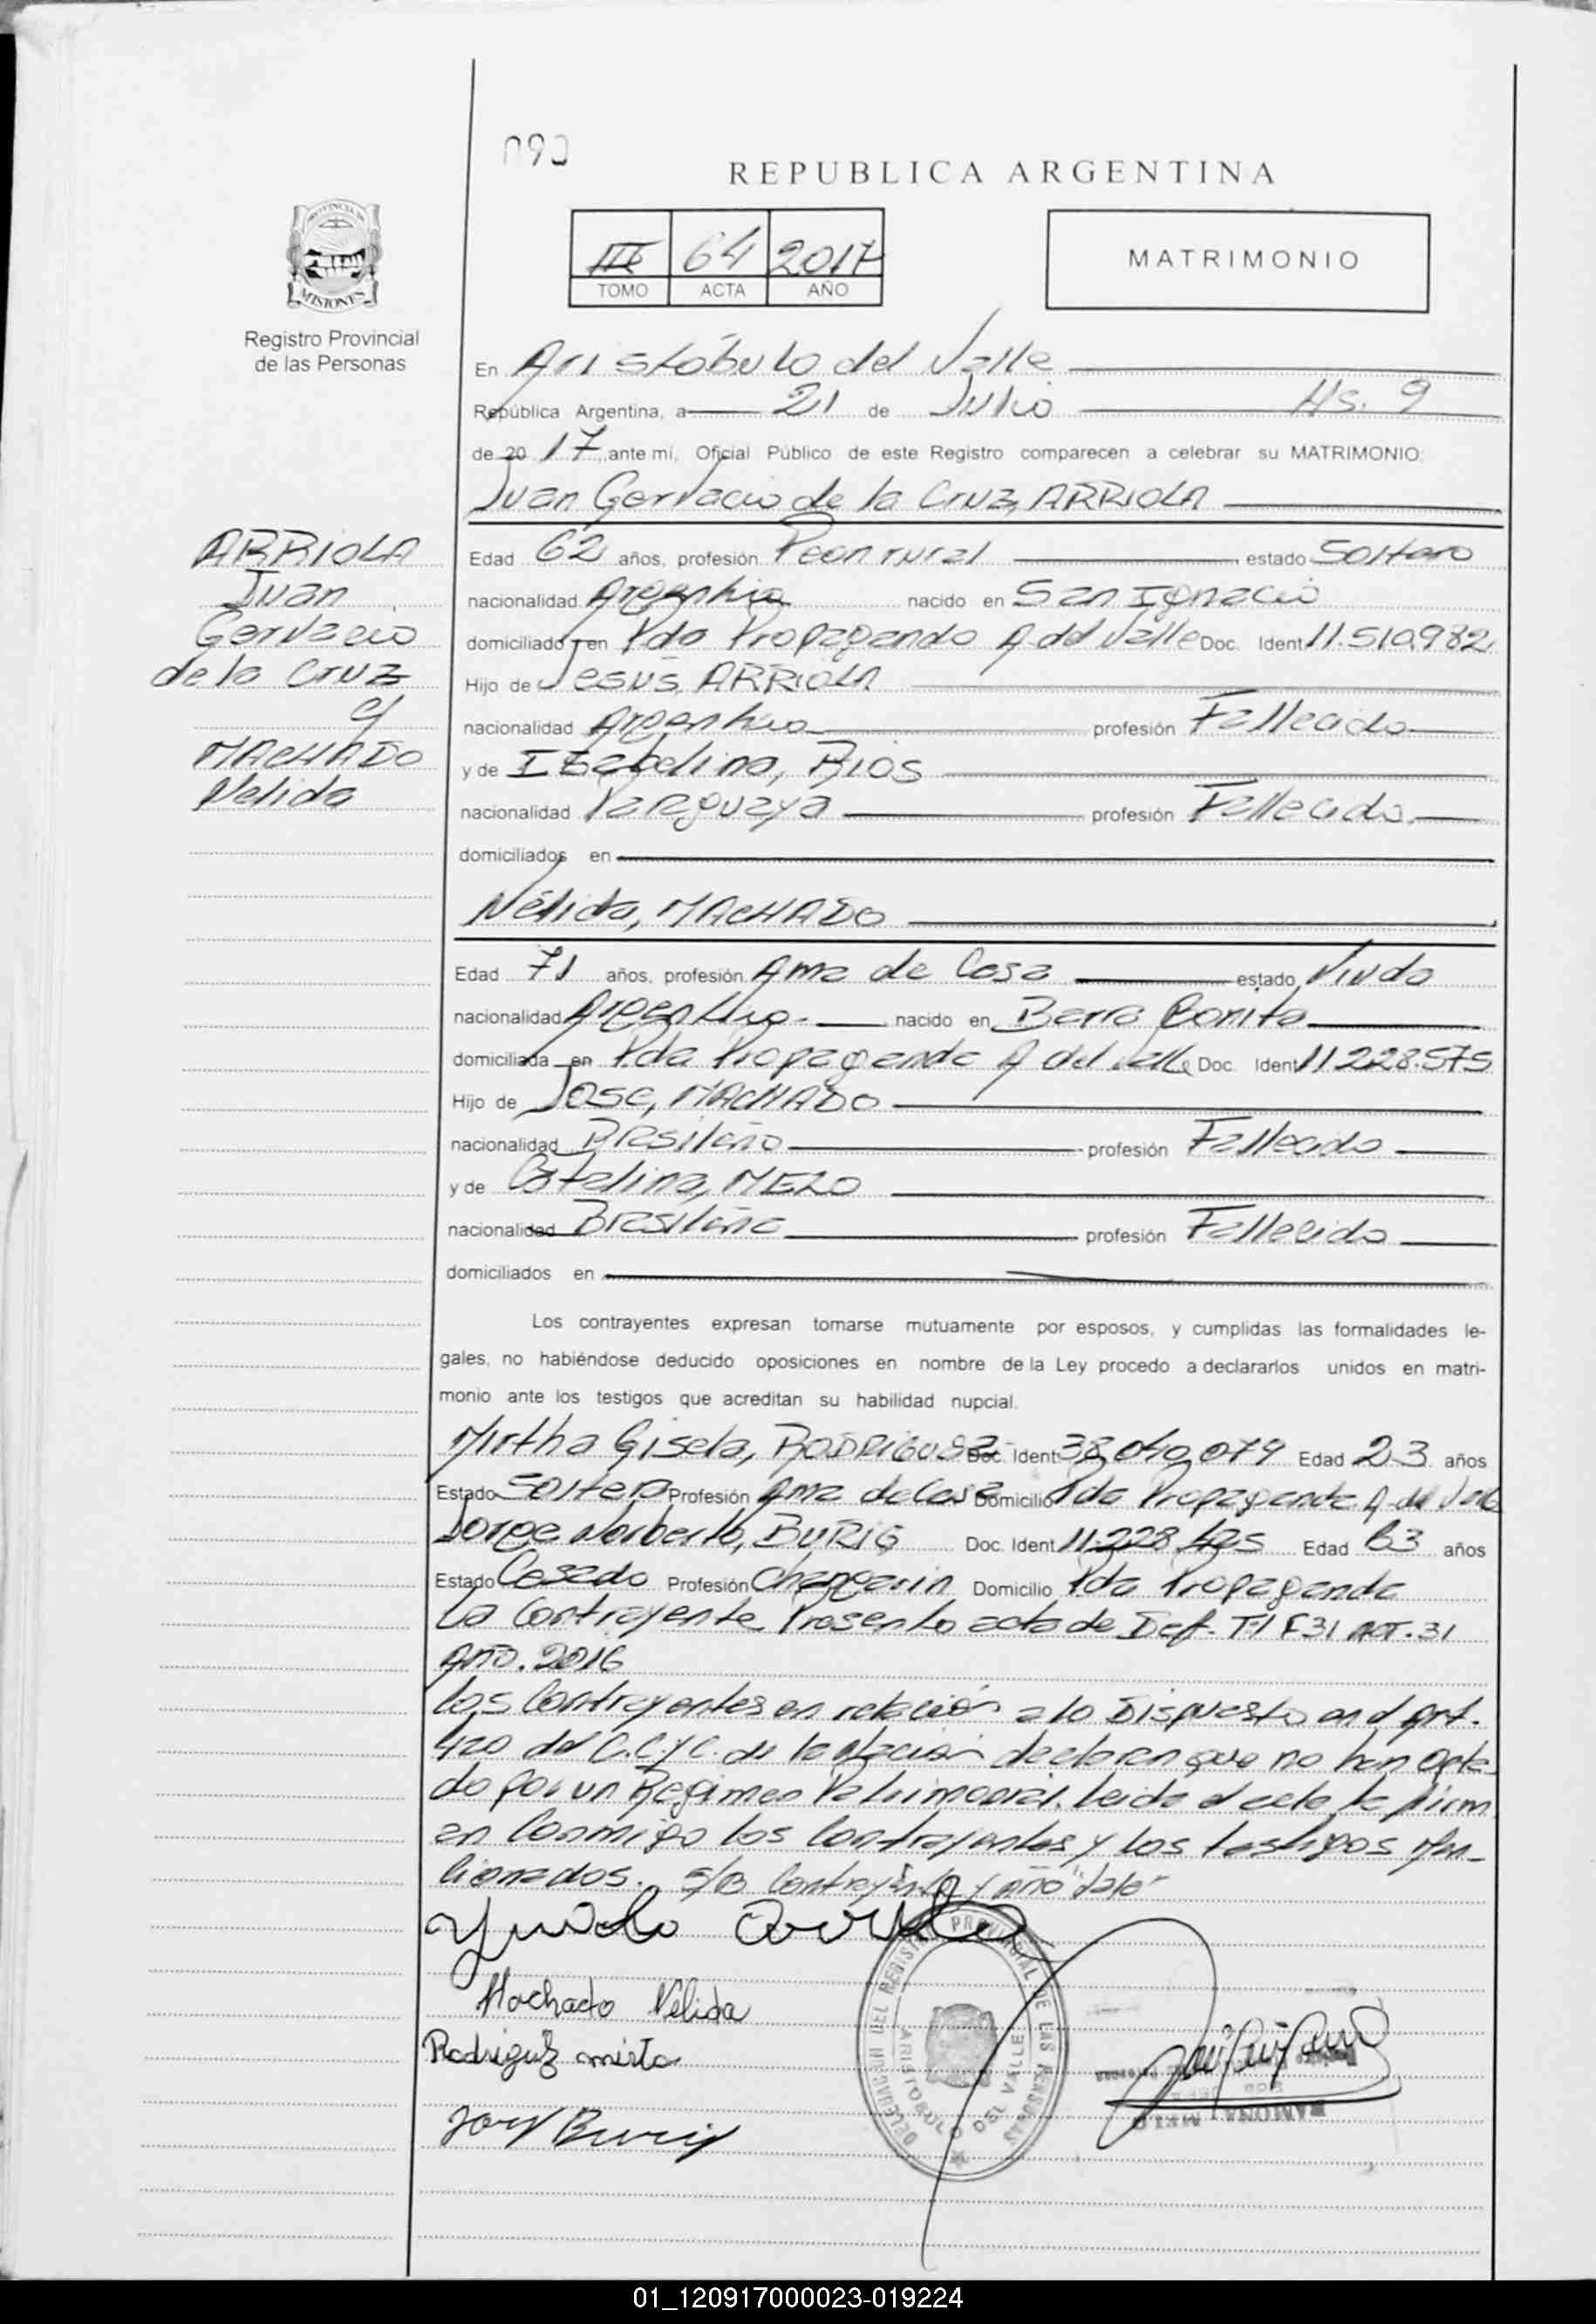 090
REPUBLICA ARGENTINA
III 64 2017
TOMO ACTA AÑO
MATRIMONIO
PROVINCIA DE
MISIONES
Registro Provincial
de las Personas
En Aristóbulo del Valle
República Argentina, a 21 de Julio Hs. 9
de 2017, ante mi, Oficial Público de este Registro comparecen a celebrar su MATRIMONIO:
Juan Gervacio de la Cruz, ARRIOLA
ARRIOLA
Juan
Gervacio
de la Cruz
c/
MACHADO
Nelida
Edad 62 años, profesión Peon rural estado Soltero
nacionalidad Argentina nacido en San Ignacio
domiciliado en Pdo Propaganda A. del Valle Doc. Ident 11.510.982
Hijo de Jesús, ARRIOLA
nacionalidad Argentino profesión Fallecido
y de Izabelina, Rios
nacionalidad Paraguaya profesión Fallecida
domiciliados en
Nélida, MACHADO
Edad 71 años, profesión Ama de Casa estado Viuda
nacionalidad Argentina nacido en Barra Bonita
domiciliada en Pda Propaganda A del Valle Doc. Ident 11.228.575
Hijo de Jose, MACHADO
nacionalidad Brasileño profesión Fallecido
y de Catalina, MELO
nacionalidad Brasileña profesión Fallecida
domiciliados en
Los contrayentes expresan tomarse mutuamente por esposos, y cumplidas las formalidades le-
gales, no habiéndose deducido oposiciones en nombre de la Ley procedo a declararlos unidos en matri-
monio ante los testigos que acreditan su habilidad nupcial.
Mirtha Gisela, RODRIGUEZ Doc. Ident 38.040.079 Edad 23 años
Estado Soltera Profesión Ama de Casa Domicilio Pda Propaganda A. del Valle
Jorge Norberto, BURIG Doc. Ident 11.228. Edad 63 años
Estado Casado Profesión Changarin Domicilio Pda Propaganda
La Contrayente Presento acta de Def. T-1 F31 ACT. 31
AÑO. 2016
Los Contrayentes en relación a lo Dispuesto en el Art.
420 del C.C.y C. de la Nación declaran que no han opta
do por un Regimen Patrimonial. Leida el acta la firm
an Conmigo los Contrayentes y los testigos Men-
cionados. S/B Contrayente y año "Vale"
Machado Nélida
Rodriguez mirta
DELEGACION DEL REGISTRO PROVINCIAL DE LAS PERSONAS
ARISTOBULO DEL VALLE
01_120917000023-019224